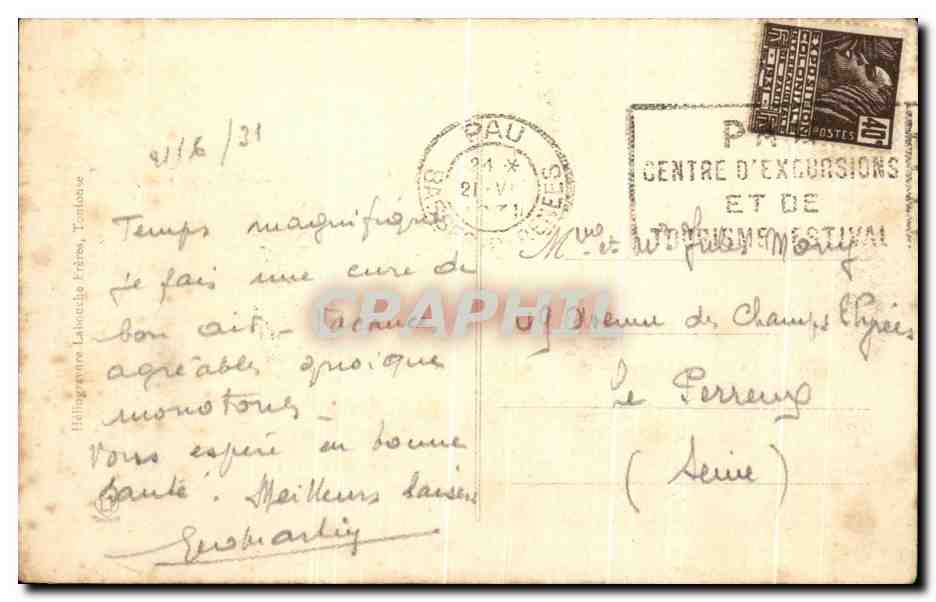 21/6/31
Temps magnifique
je fais une cure de
bon air - Vacances
agréables quoique
monotones -
Vous espère en bonne
santé. Meilleurs baisers
Héliogravure Labouche Frères, Toulouse
PAU
24 *
21 VI
BASSES PYRENEES
PAU
CENTRE D'EXCURSIONS
ET DE
TOURISME ESTIVAL
EXPOSITION COLONIALE INTERNATIONALE PARIS 1931
POSTES
40c
Mme et Mr Jules
69 Avenue des Champs Elysées
Le Perreux
(Seine)
CPAPHIL